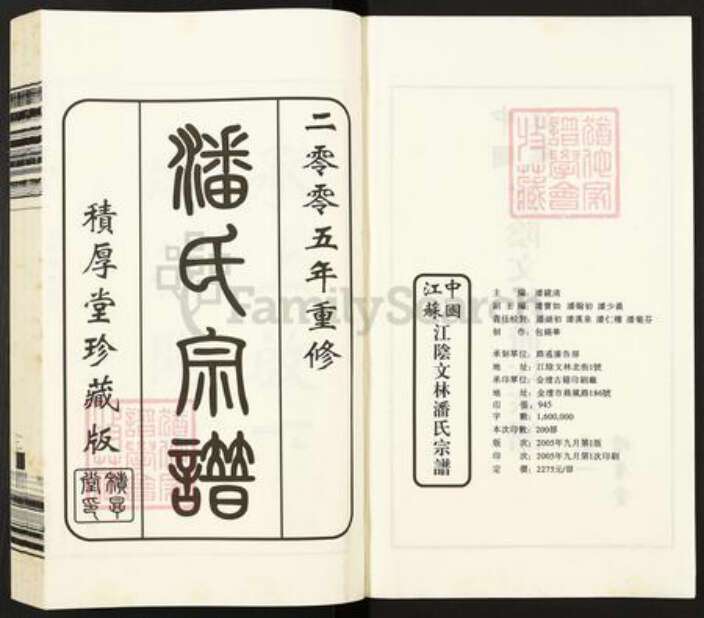 二零零五年重修
潘氏宗譜
積厚堂珍藏版
積厚堂印
中國江蘇
江陰文林潘氏宗譜
主 編：潘
副主編：潘寶如 潘翰初 潘少義
責任校對：潘 初 潘漢泉 潘仁 潘菊芬
制 作：包錫華
承制單位：路遙廣告部
地 址：江陰文林北街1號
承印單位：金壇古籍印刷廠
地 址：金壇市 風路186號
印 張：945
字 數：1,600,000
本次印數：200部
版 次：2005年九月第1版
印 次：2005年九月第1次印刷
定 價：2275元/部
FamilySearch
譜學會
收藏